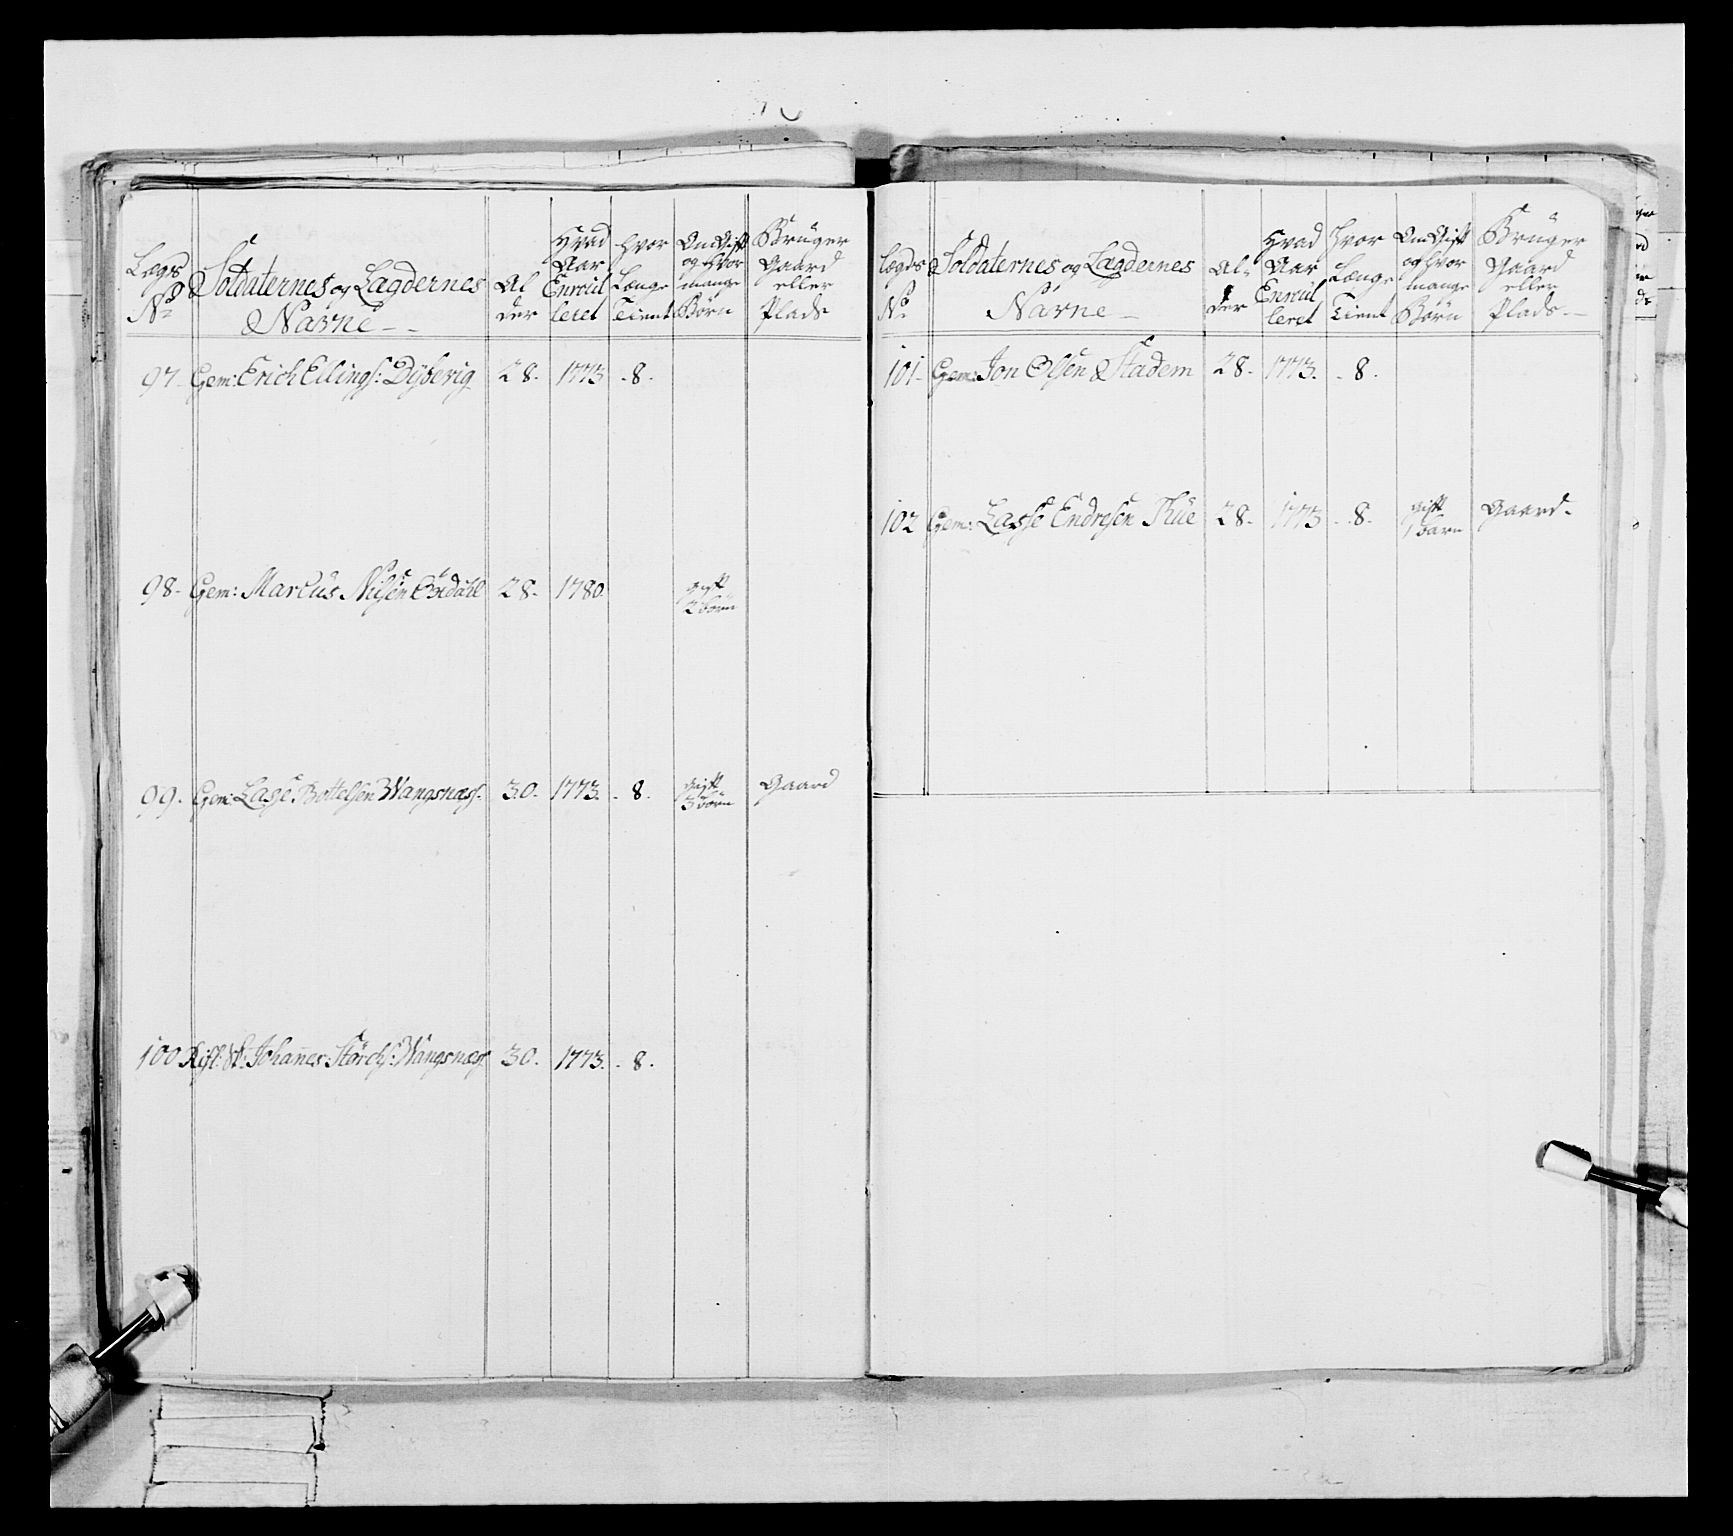 Lægds No Soldaternes og Lægdernes Navne Alder Hvad Aar Enroulleret Hvor Længe Tient Om Gift og hvor mange Börn Bruger Gaard eller Plads
97. Gem: Erich Ellings: Dybevig 28. 1773 8.
98. Gem: Marcus Nilsen 28. 1780. gift 2 börn
99. Gem: Lasse Bottelsen Wangsnæs. 30. 1773. 8. gift 3 börn Gaard
100 Johannes Wangsnæs 30. 1773. 8.
Lægds No Soldaternes og Lægdernes Navne Alder Hvad Aar Enroulleret Hvor Længe Tient Om Gift og hvor mange Börn Bruger Gaard eller Plads
101. Gem: Jon Olsen Stadem 28. 1773. 8.
102 Gem: Lasse Endresen Thue 28. 1773 8. gift 1 barn Gaard.